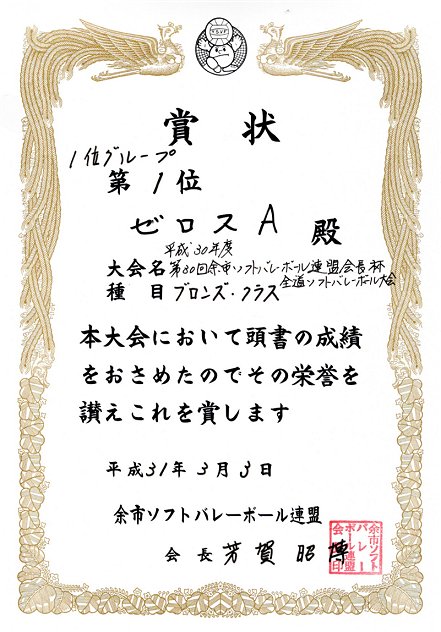 賞状
1位グループ
第1位
ゼロスA 殿
平成30年度
大会名 第30回余市ソフトバレーボール連盟会長杯
全道ソフトバレーボール大会
種目 ブロンズ・クラス
本大会において頭書の成績
をおさめたのでその栄誉を
讃えこれを賞します
平成31年3月3日
余市ソフトバレーボール連盟
会長 芳賀昭博
余市ソフト
バレー
ボール連盟
会印